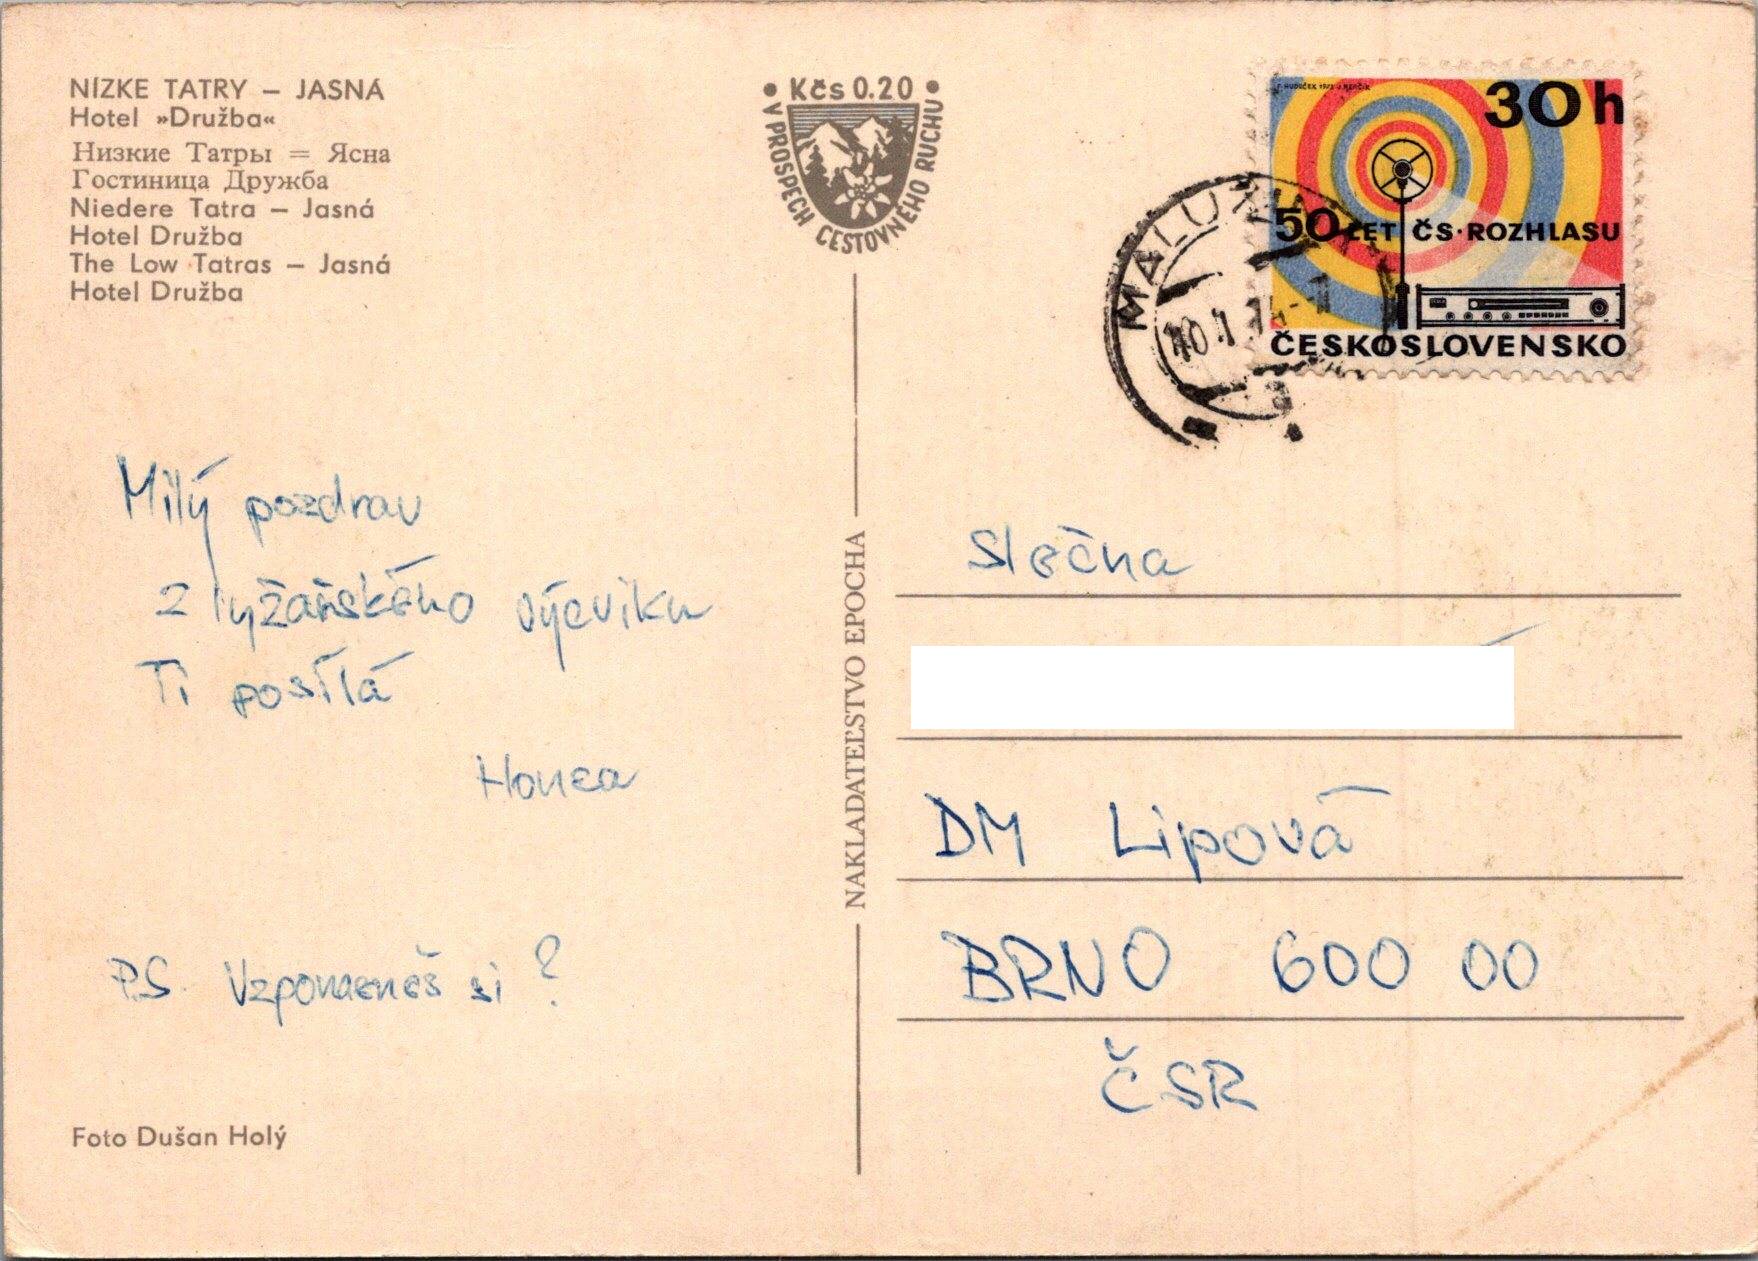 NÍZKE TATRY – JASNÁ
Hotel »Družba«
Низкие Татры = Ясна
Гостиница Дружба
Niedere Tatra – Jasná
Hotel Družba
The Low Tatras – Jasná
Hotel Družba
• Kčs 0.20 •
V PROSPECH CESTOVNÉHO RUCHU
30 h
50 LET ČS·ROZHLASU
ČESKOSLOVENSKO
Milý pozdrav
z lyžařského výcviku
Ti posílá
Honza
P.S. Vzpomeneš si ?
Foto Dušan Holý
NAKLADATEĽSTVO EPOCHA
Slečna
DM Lipová
BRNO 600 00
ČSR